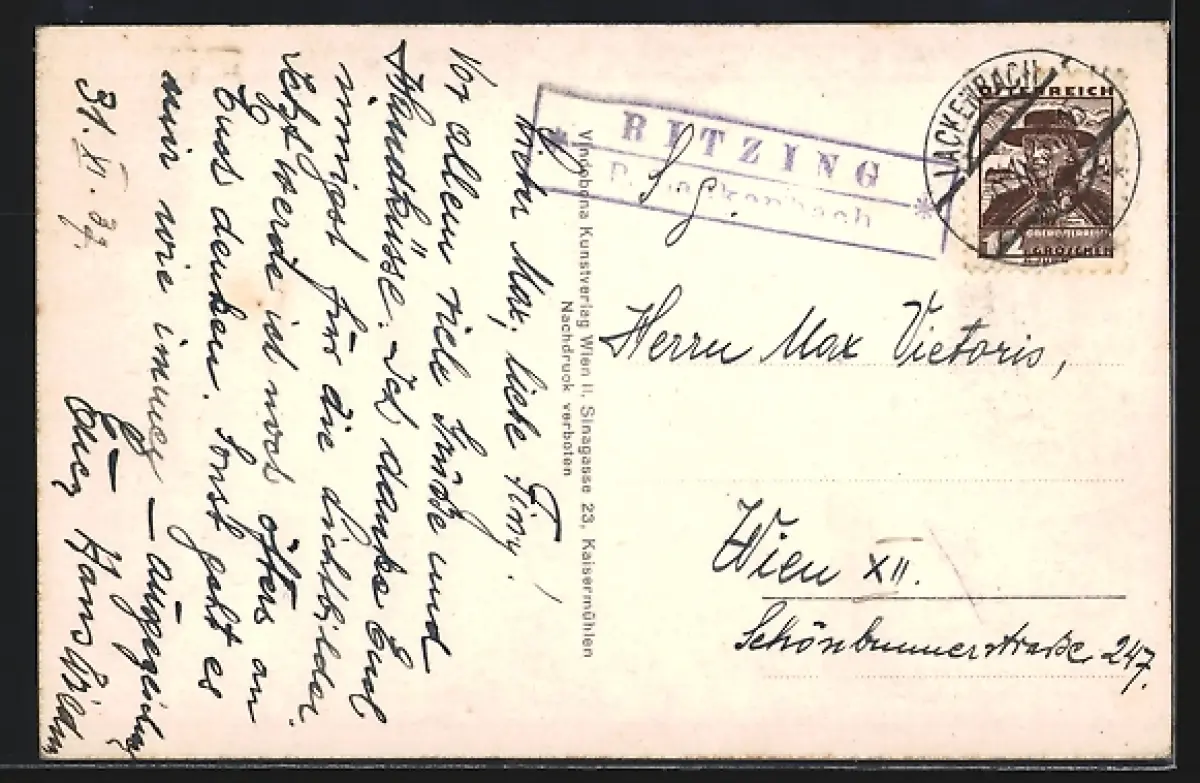 Mein Max, liebe Finy!
Vor allem viele Grüße und
Handküsse. Ich danke Euch
innigst für die Lichtbilder.
Jetzt werde ich noch öfters an
Euch denken. Sonst geht es
mir wie immer – ausgezeichnet
Euer Hans
31. XI. 37.
Vindobona Kunstverlag Wien II. Sinagasse 23, Kaisermühlen
Nachdruck verboten
RITZING
P. Lackenbach
LACKENBACH
ÖSTERREICH
GROSCHEN
Sg.
Herrn Max Victoris,
Wien XII.
Schönbrunnerstraße 247.